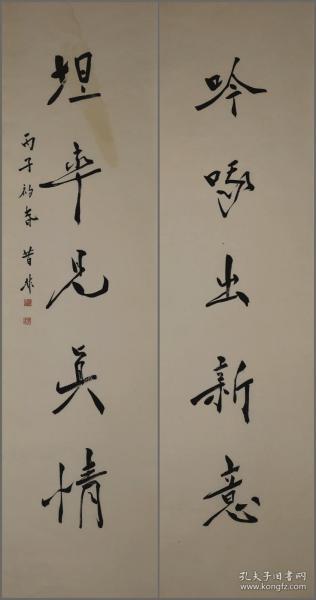 吟哦出新意
坦率見眞情
丙子初春 昔非
孔夫子旧书网
www.kongfz.com